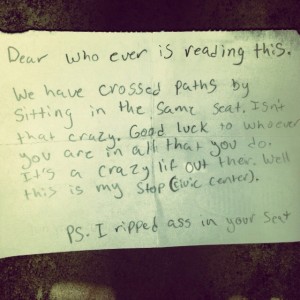 Dear who ever is reading this.
We have crossed paths by
sitting in the same seat. Isn't
that crazy. Good luck to whoever
you are in all that you do.
It's a crazy lif out ther. Well
this is my stop (civic center).
PS. I ripped ass in your seat